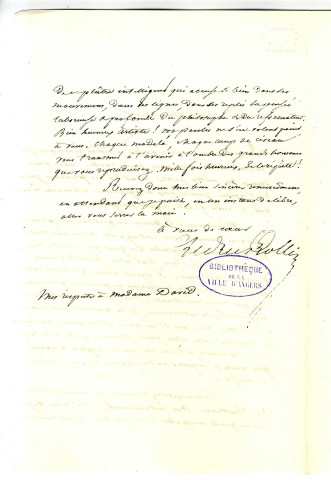 De plâtre intelligent qui accuse si bien dans ses
mouvemens, dans ses lignes, dans ses replis la pensée
laborieuse & profonde du philosophe & du réformateur.
Bien heureux artiste! vos paroles ne s'en volent point
à vous, chaque modèle, chaque coup de ciseau
vous transmet à l'avenir à l'ombre des grands hommes
que vous reproduisez, mille fois heureux, je le répète!
Recevez donc mes bien sincères remerciemens,
en attendant que je puisse, en un instant de libre,
aller vous serrer la main.
à vous de cœur
Ledru Rollin
BIBLIOTHÈQUE
DE LA
VILLE D'ANGERS
Mes respects à madame David.